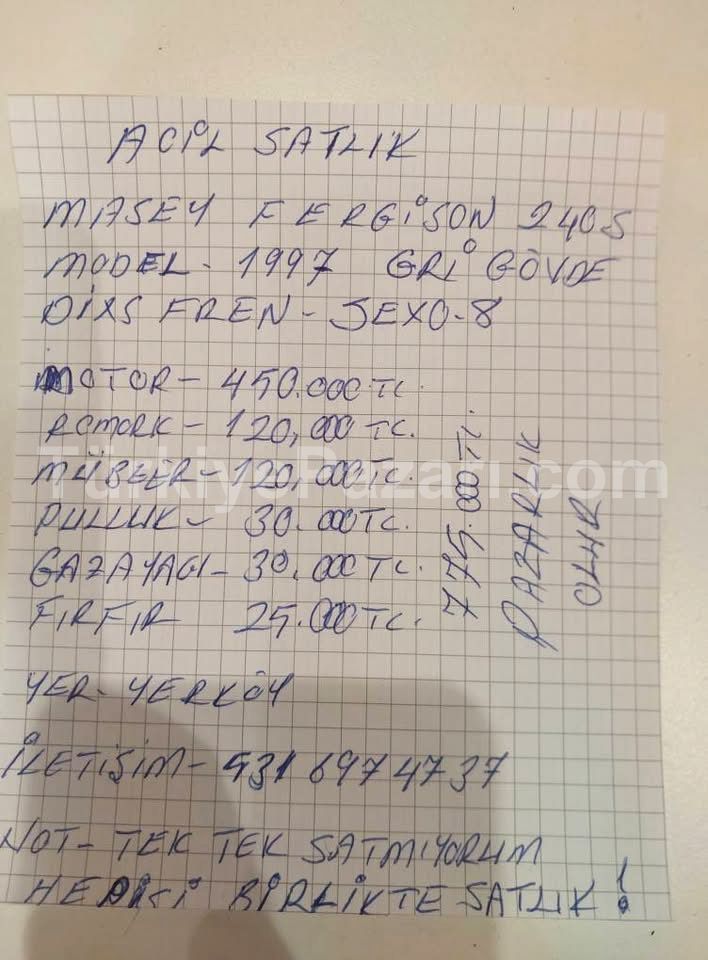 ACİL SATLIK
MASEY FERGİSON 240S
MODEL - 1997 GRİ GÖVDE
DİXS FREN - JEXO-8
MOTOR - 450.000 TC.
ROMORK - 120,000 TC.
MÜBEER - 120,000 TC.
PULLUK - 30.000 TC.
GAZAYAGI - 30.000 TC.
FIRFIR 25.000 TC.
775.000 TC.
PAZARLIK
OLUR
YER - YERKÖY
İLETİŞİM - 531 697 47 37
NOT - TEK TEK SATMIYORUM
HEPİSİ BİRLİKTE SATLIK !
TürkiyePazari.com